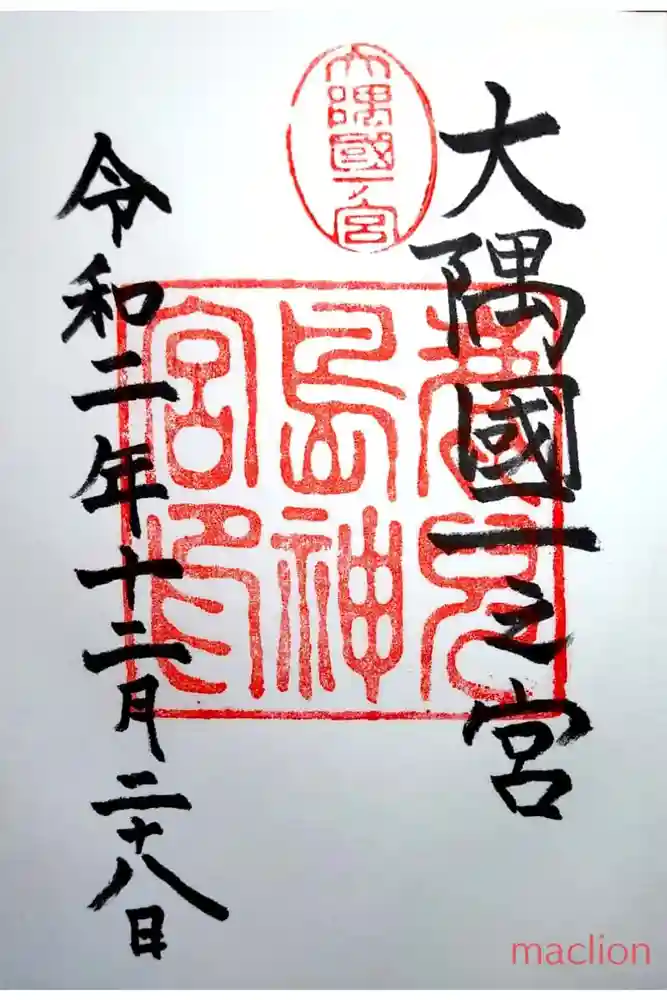 大隅國一之宮
大隅國一ノ宮
鹿兒島神宮印
令和二年十二月二十八日
maclion